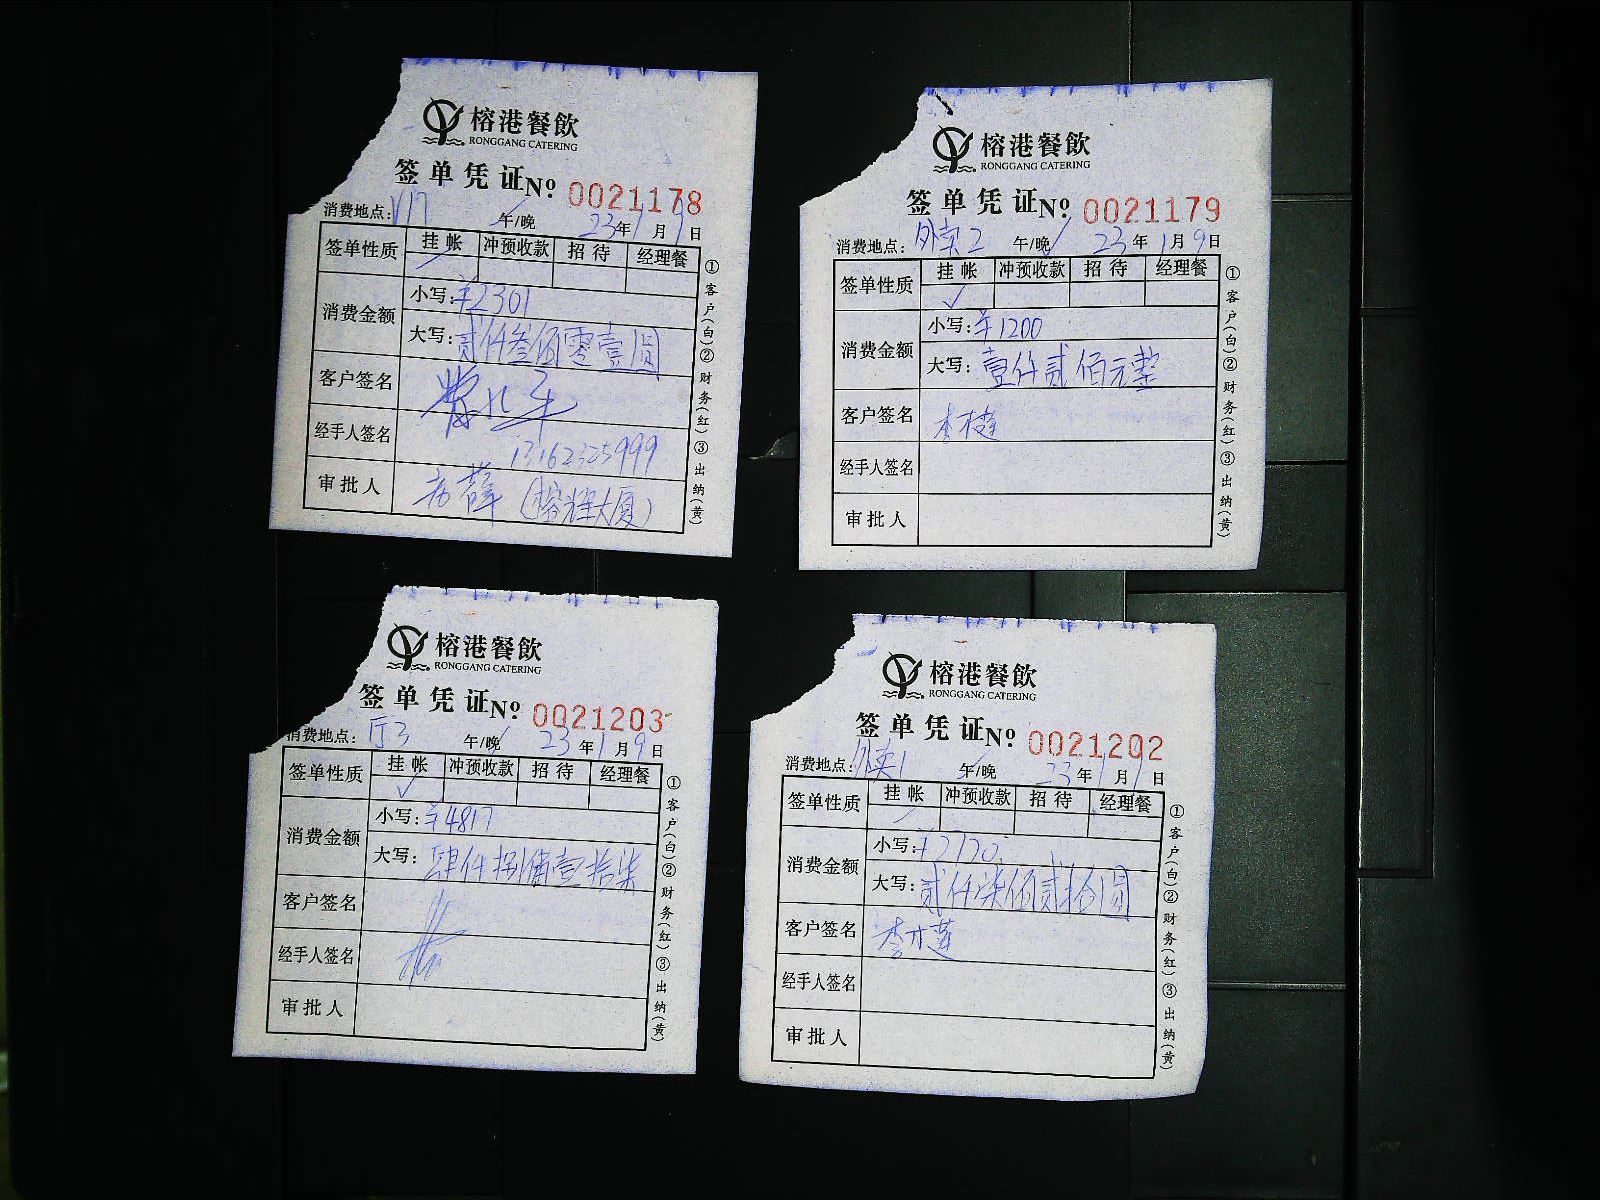 榕港餐飲
RONGGANG CATERING
签单凭证 Nº 0021178
消费地点: V17 午/晚 23年1月9日
签单性质 挂帐 冲预收款 招待 经理餐
消费金额
小写: ¥2301
大写: 贰仟叁佰零壹圆
客户签名
经手人签名 13162325999
审批人 (榕辉大厦)
①客户(白)②财务(红)③出纳(黄)
榕港餐飲
RONGGANG CATERING
签单凭证 Nº 0021179
消费地点: 外卖2 午/晚 23年1月9日
签单性质 挂帐 冲预收款 招待 经理餐
✓
消费金额
小写: ¥1200
大写: 壹仟贰佰元整
客户签名
经手人签名
审批人
①客户(白)②财务(红)③出纳(黄)
榕港餐飲
RONGGANG CATERING
签单凭证 Nº 0021203
消费地点: 厅3 午/晚 23年1月9日
签单性质 挂帐 冲预收款 招待 经理餐
✓
消费金额
小写: ¥4817
大写: 肆仟捌佰壹拾柒
客户签名
经手人签名
审批人
①客户(白)②财务(红)③出纳(黄)
榕港餐飲
RONGGANG CATERING
签单凭证 Nº 0021202
消费地点: 外卖1 午/晚 23年1月 日
签单性质 挂帐 冲预收款 招待 经理餐
消费金额
小写: ¥2720
大写: 贰仟柒佰贰拾圆
客户签名
经手人签名
审批人
①客户(白)②财务(红)③出纳(黄)